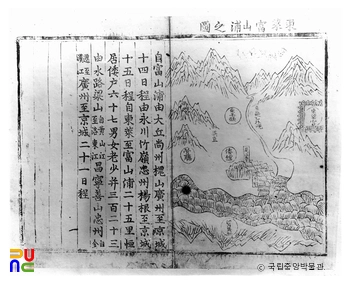 東萊富山浦之圖
自富山浦由大丘尚州槐山廣州至京城
十四日程由永川竹嶺忠州楊根至京城
十五日程自東萊至富山浦二十五里恒
居倭戶六十七男女老少幷三百二十三
由水路梁山自黃山江至洛東江昌寧善山忠州自金
遷至漢江廣州至京城二十一日程
© 국립중앙박물관